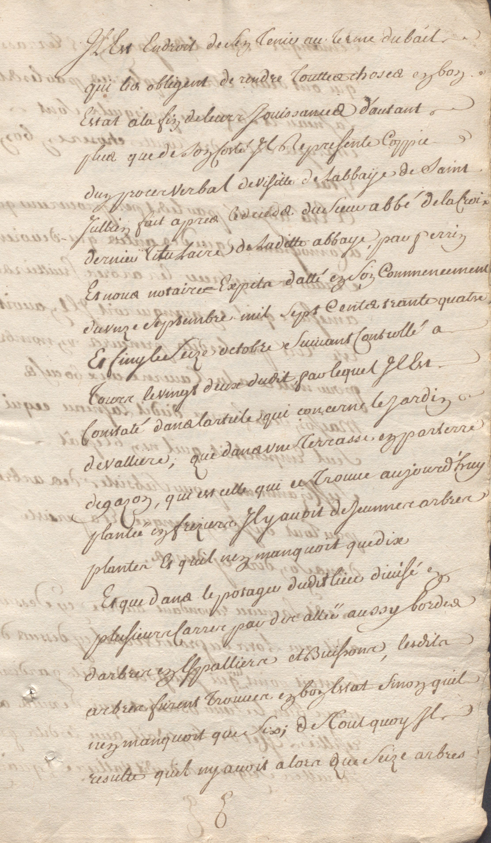 Il Est Endroit de s'en Tenir au terme du bail
qui les obligent de rendre Touttes choses en bon
Estat a la fin de leur Jouissances d'autant
plus que de son costé Il Represente Coppie
d'un procer verbal de visitte de Labbaye de Saint
Jullien fait apres le décédx du sieur abbé de la Croix
dernier titulaire de Laditte abbaye, par perrin
Et nous notaires Experts datté en son Commencement
d'unze septembre mil sept Cents trante quatre
Et finy le Seize octobre Suivant Controllé a
Tours le vingt deux dudit par lequel Il Est
Constaté dans larticle qui concerne le Jardin
de valliere, que dans une Terrasse en parterre
de gazon, qui est celle qui ce Trouve aujourd'huy
plantée en Il y avoit de Jeunnes arbres
plantés et quil n'en manquoit que dix
Et que dans le potager dudit lieu divisé en
plusieurs Carrés par des allée aussy bordés
d'arbres en Espalliers et Buissons, lesdits
arbres furent Trouvés en bon Estat sinon quil
n'en manquoit que six; de tout quoy Il
resulte quil n'y avoit alors que Seize arbres